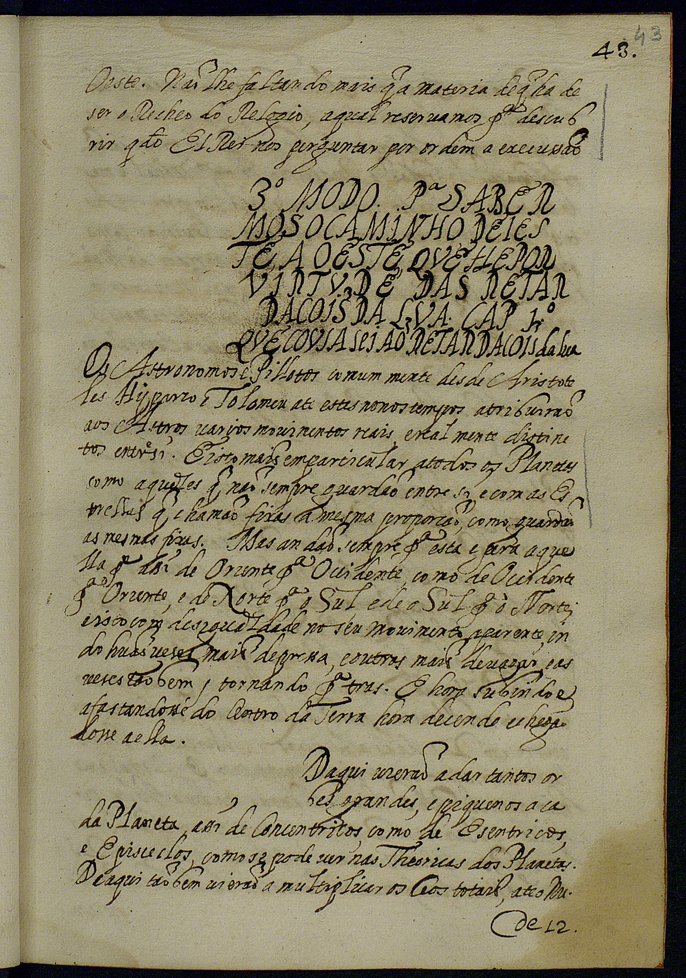 43
43.
Oeste. Naõ lhe faltando mais q̃ a materia de q̃ ha de
ser o Recheo do Relogio, a qual reservamos pª descub
rir qdo El Rei nos perguntar por ordem a execussaõ
3º MODO. Pª SABER
MOS O CAMINHO DE LES
TE, A OESTE, QVE HE POR
VIRTVDE DAS RETAR
DACOIS DA LVA. CAP 1º
QVE COVSA seiaõ RETARDACOIS da lua
Os Astronomos e Pillotos comummente desde Aristote
les Hyparco e Tolomeu ate estes nossos tempos atribuiraõ
aos Astros varios movimentos reais, e realmente distinc
tos entre si. E isto mais em particular a todos os Planetas
como aquelles q̃ naõ sempre guardaõ entre si, e com as Es
trellas q̃ chamaõ fixas a mesma proporçaõ, como guardaõ
as mesmas fixas. Mas andaõ sempre pª esta e pera aque
lla pᵉ assi de Oriente pª Ocidente, como de Ocidente
pª Oriente, e de Norte pª o Sul e de o Sul pª o Norte;
e isto com desigualdade no seu movimento aparente, in
do huãs veses mais depressa, e outras mais devagar, e as
veses taõbem, tornando pª tras. E hora subindo e
afastandose do Centro da Terra hora decende e chega
dosse a ella.
Daqui vieraõ a dar tantos or
bes, grandes, e piquenos a ca
da Planeta, assi de Concentricos, como de Esentricos,
e Episeclos, como se pode ver nas Theoricas dos Planetas.
De aqui taõbem vieraõ a multiplicar os Ceos totais, ate o Nu.
de 12.